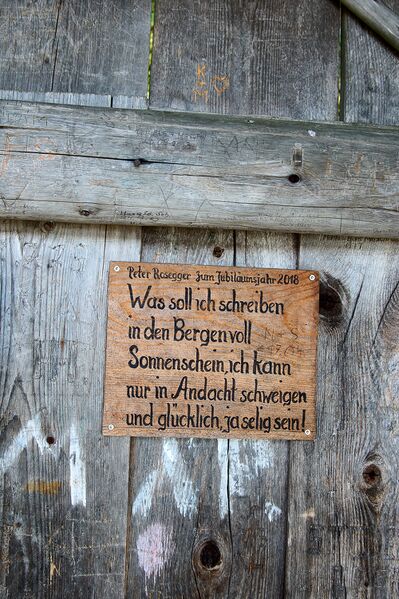 K ♡
M
Peter Rosegger zum Jubiläumsjahr 2018
Was soll ich schreiben
in den Bergen voll
Sonnenschein, ich kann
nur in Andacht schweigen
und glücklich, ja selig sein!